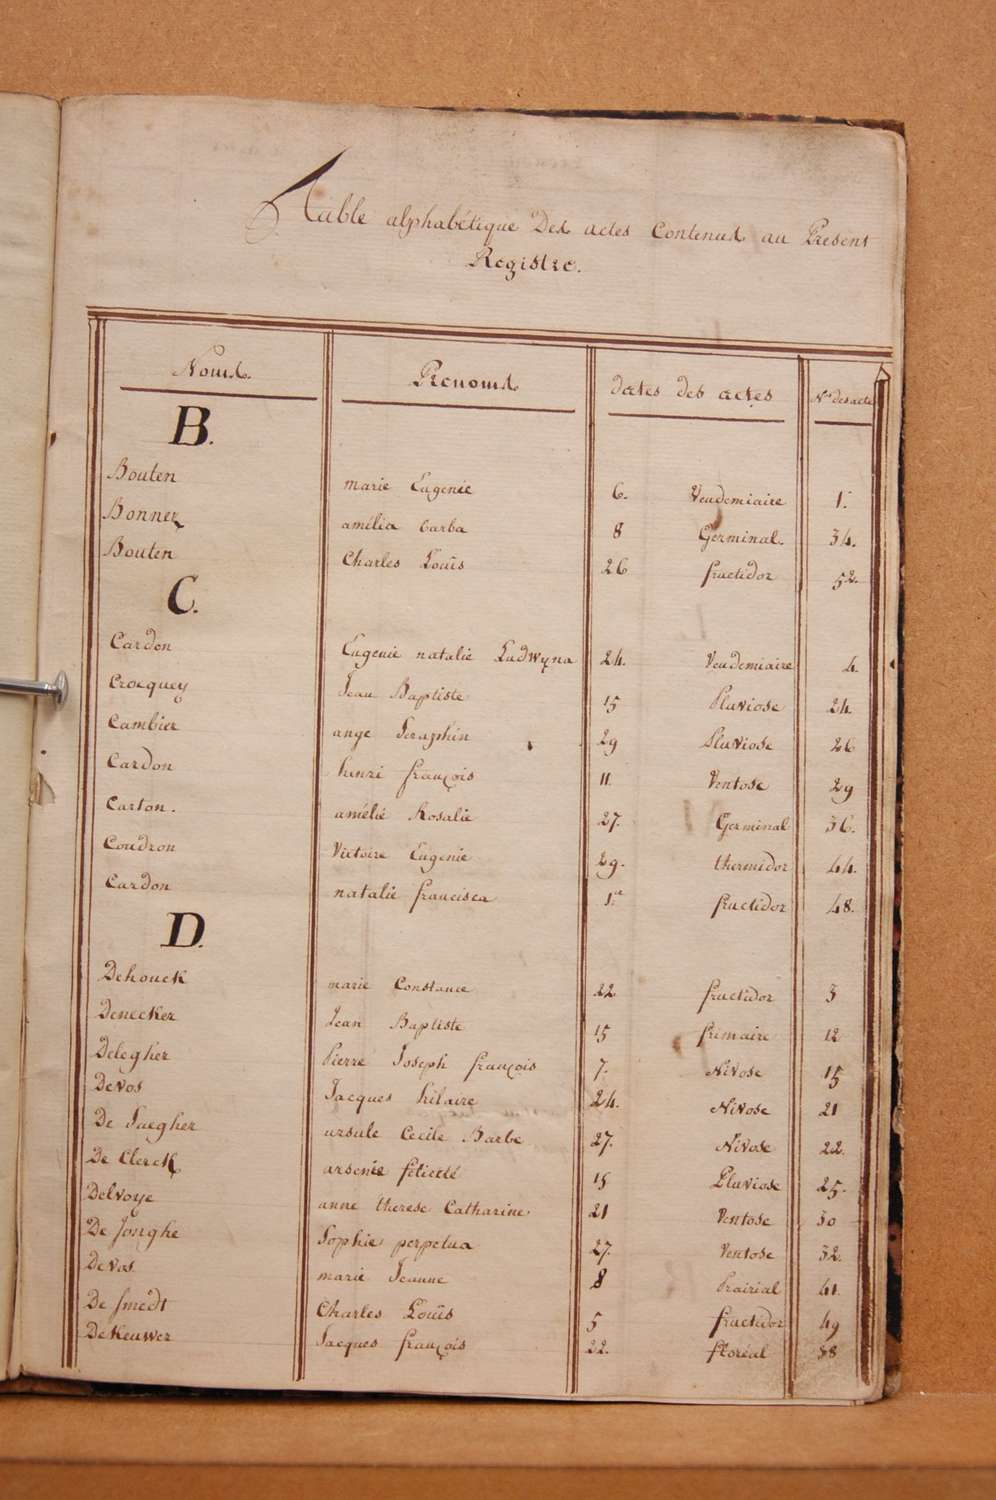 Table alphabétique Des actes Contenus au Present
Registre.
Noms. Prenoms dates des actes Nos des acte
B.
Bouten marie Eugenie 6. Vendemiaire 1.
Bonnez amélia barba 8 Germinal. 34.
Bouten Charles Louis 26 fructidor 52.
C.
Cardon Eugenie natalie Ludwyna 24. Vendemiaire 4.
Crocquey Jean Baptiste 15 Pluviose 24
Cambier ange Seraphin 29 Pluviose 26
Cardon henri françois 11. Ventose 29
Carton. amélié Rosalie 27. Germinal 36.
Coudron Victoire Eugenie 29. thermidor 44.
Cardon natalie francisca 1er fructidor 48.
D.
Dehouck marie Constance 22. fructidor 3
Denecker Jean Baptiste 15 frimaire 12
Delegher Pierre Joseph françois 7. Nivose 15
Devos Jacques hilaire 24. Nivose 21
De Jaegher ursule Cecile Barbe 27. Nivose 22.
De Clerck arsenie félicité 15 Pluviose 25.
Delvoye anne therese Catharine 21 Ventose 30
De Jonghe Sophie perpetua 27. Ventose 32.
Devos marie Jeanne 8 Prairial 41.
De Smedt Charles Louis 5 fructidor 49
DeKeuwer Jacques françois 22. floréal 38